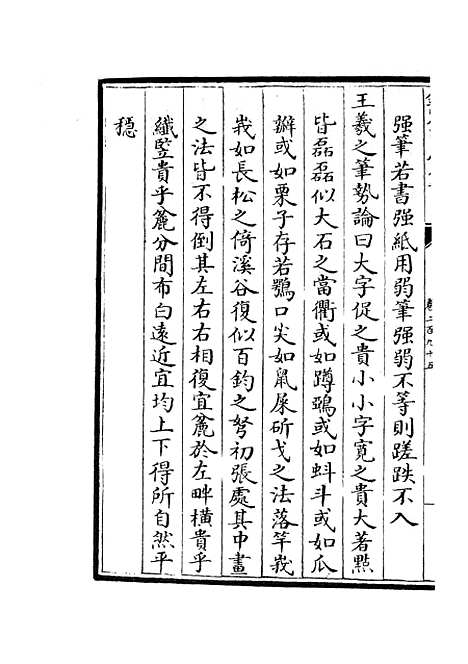 强筆若書强紙用弱筆强弱不等則蹉跌不入
王羲之筆勢論曰大字促之貴小小字寛之貴大著點
皆磊磊似大石之當衢或如蹲鴟或如蚪斗或如瓜
瓣或如栗子存若鶚口尖如鼠屎斫戈之法落竿峩
峩如長松之倚溪谷復似百鈞之弩初張處其中畫
之法皆不得倒其左右右相復宜麄於左畔横貴乎
纎竪貴乎麄分間布白遠近宜均上下得所自然平
穏
卷二百九十五